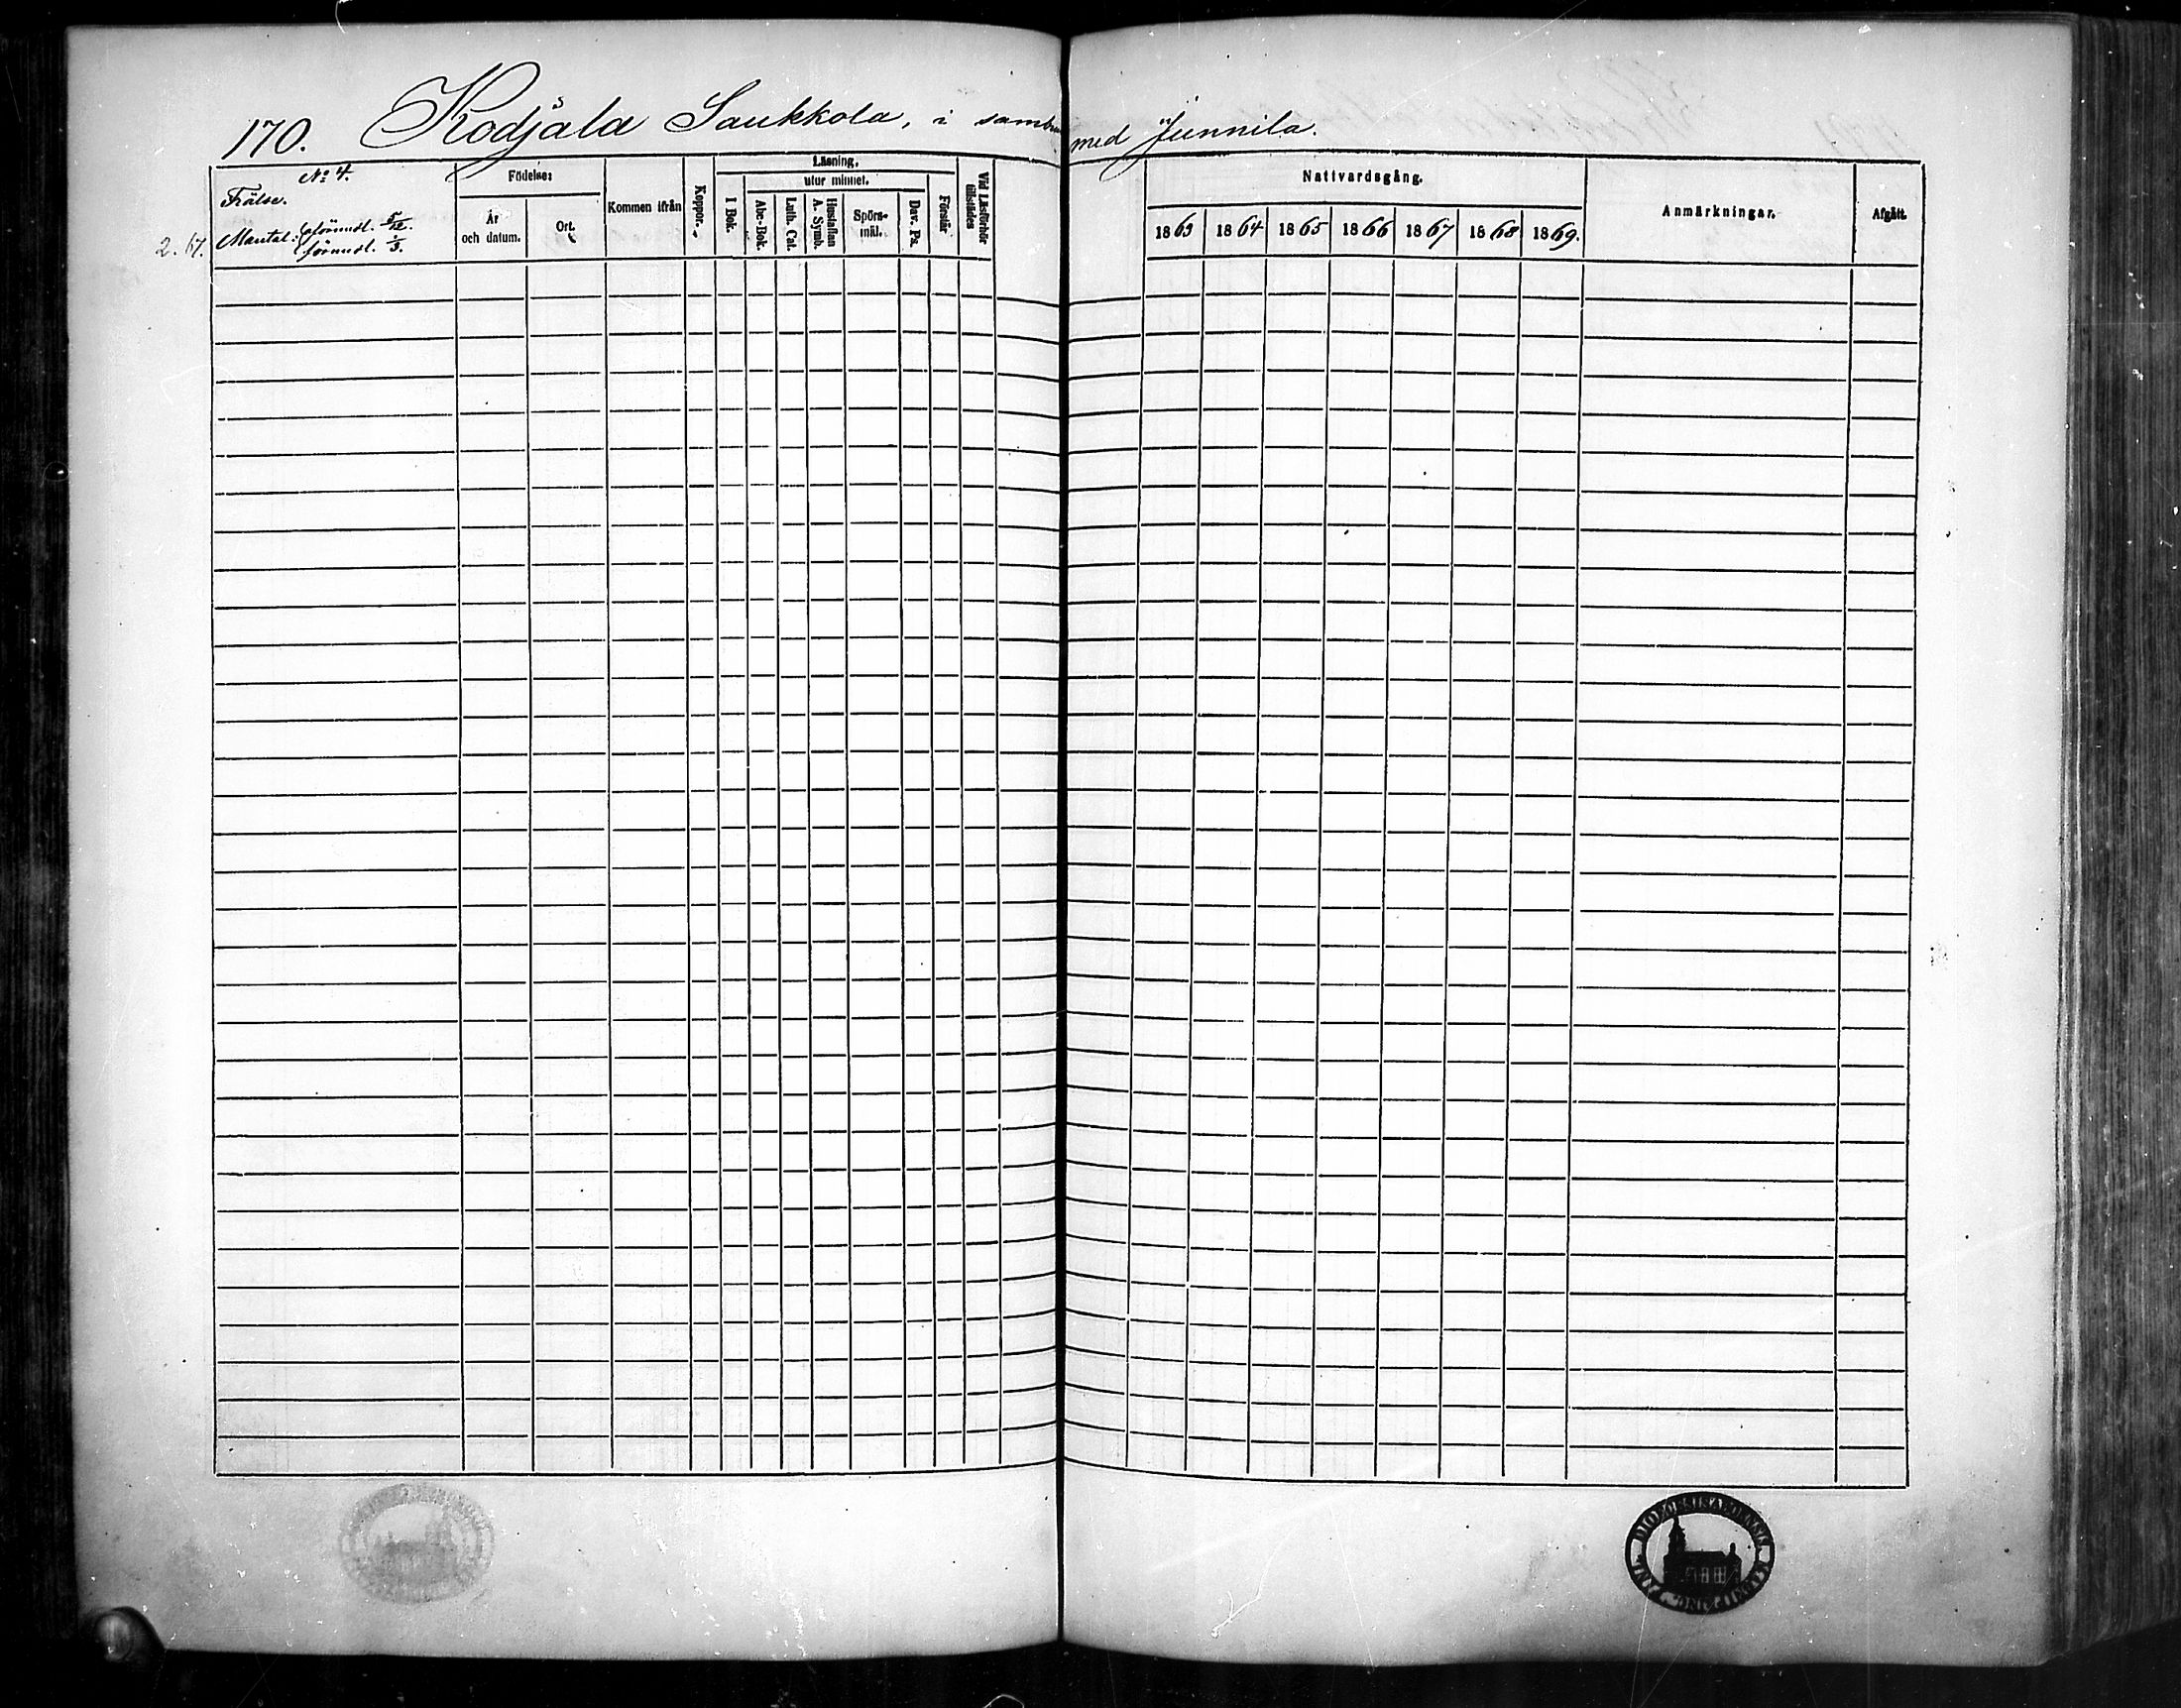 170. Kodjala Saukkola, i sambr med Junnila.
No 4.
Frälse.
2. 67. Mantal: oförmedl. 5/12.
förmedl. 1/3.
Födelse:
År och datum.
Ort.
Kommen ifrån
Koppor.
Läsning.
utur minnet.
I Bok.
Abc-Bok.
Luth. Cat.
Hustaflan A. Symb.
Spörsmål.
Dav. Ps.
Förstår
Vid Läsförhör tillstädes
Nattvardsgång.
1863 1864 1865 1866 1867 1868 1869.
Anmärkningar.
Afgått.
DIOECESIS ABOENSIS